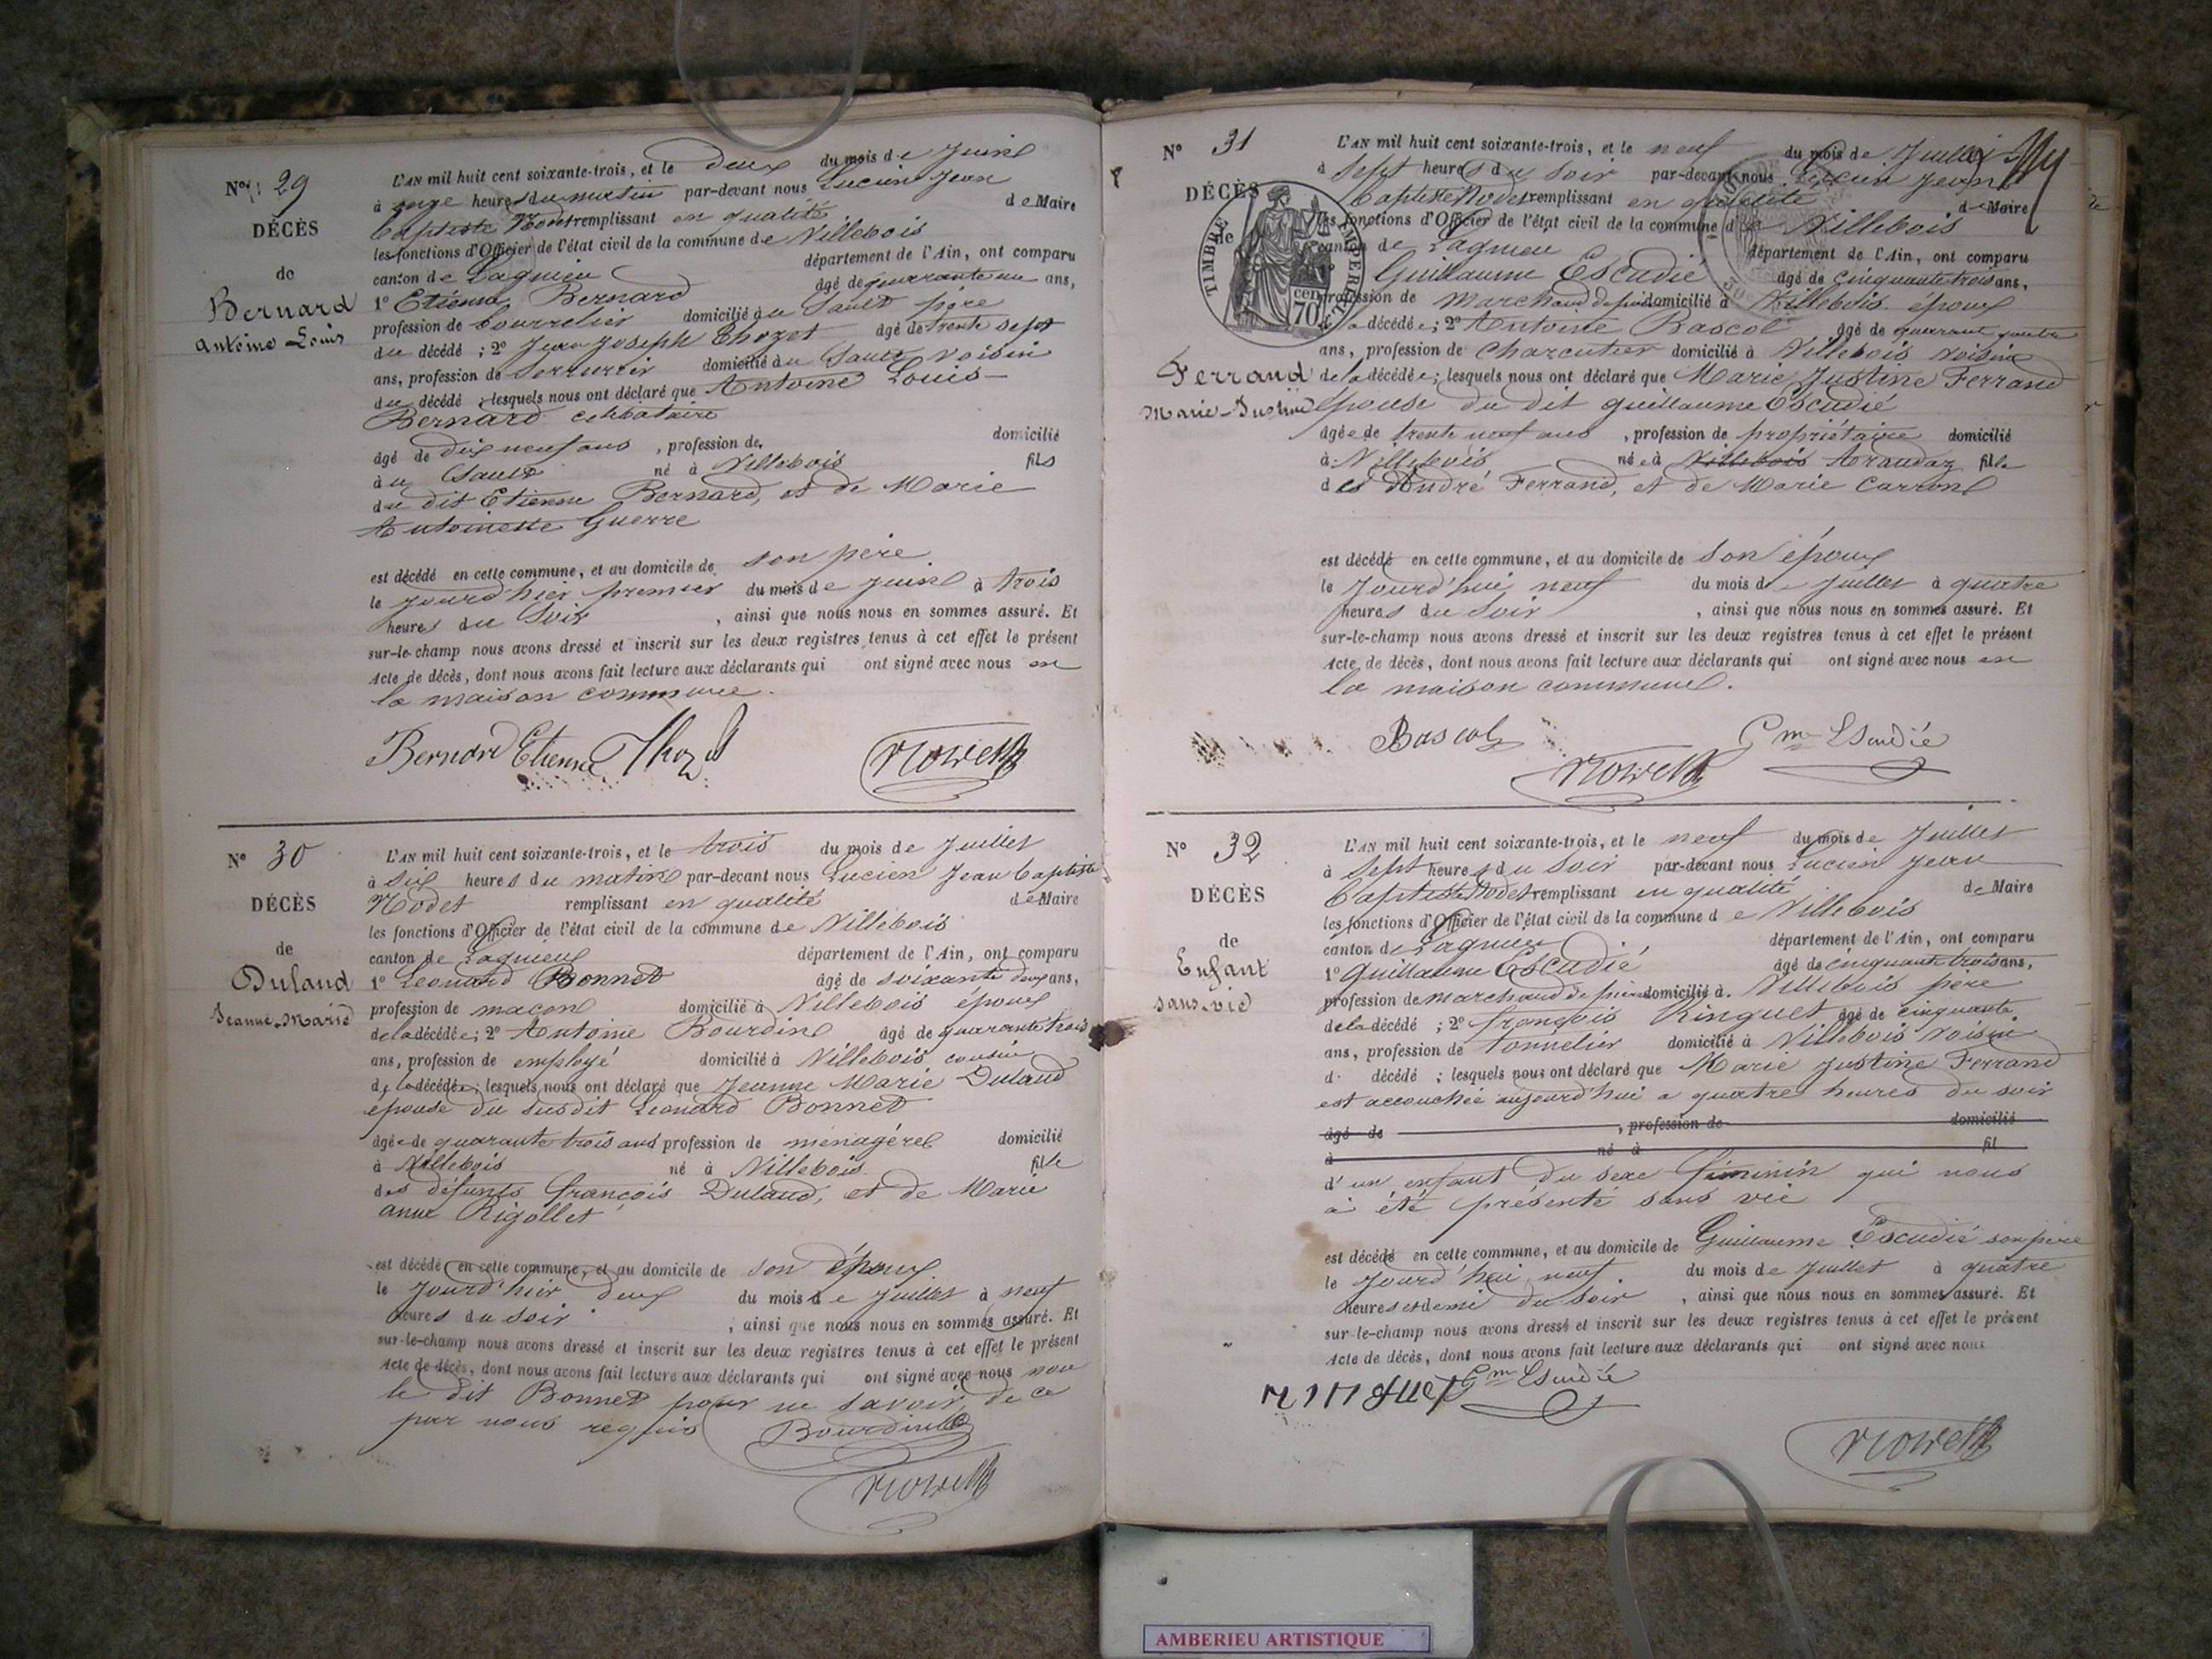 N° 29
DÉCÈS
de
Bernard
Antoine Louis
L'AN mil huit cent soixante-trois, et le deux du mois de Juin
à onze heures du matin par-devant nous Lucien Jean
Baptiste Nodet remplissant en qualité de Maire
les fonctions d'Officier de l'état civil de la commune de Villebois
canton de Lagnieu département de l'Ain, ont comparu
1° Etienne Bernard âgé de quarante un ans,
profession de bourrelier domicilié au Sault père
du décédé ; 2° Jean Joseph Thozet âgé de trente sept
ans, profession de serrurier domicilié au Sault voisin
du décédé ; lesquels nous ont déclaré que Antoine Louis
Bernard célibataire
âgé de dix neuf ans , profession de domicilié
au Sault né à Villebois fils
du dit Etienne Bernard, et de Marie
Antoinette Guerre
est décédé en cette commune, et au domicile de son père
le jourd'hier premier du mois de Juin à trois
heures du soir , ainsi que nous nous en sommes assuré. Et
sur-le-champ nous avons dressé et inscrit sur les deux registres tenus à cet effet le présent
Acte de décès, dont nous avons fait lecture aux déclarants qui ont signé avec nous en
la maison commune.
Bernard Etienne Thozet Nodet
N° 30
DÉCÈS
de
Dulaud
Jeanne-Marie
L'AN mil huit cent soixante-trois, et le trois du mois de Juillet
à six heures du matin par-devant nous Lucien Jean Baptiste
Nodet remplissant en qualité de Maire
les fonctions d'Officier de l'état civil de la commune de Villebois
canton de Lagnieu département de l'Ain, ont comparu
1° Leonard Bonnet âgé de soixante deux ans,
profession de maçon domicilié à Villebois époux
de la décédée ; 2° Antoine Bourdin âgé de quarante trois
ans, profession de employé domicilié à Villebois cousin
de la décédée ; lesquels nous ont déclaré que Jeanne Marie Dulaud
épouse du susdit Leonard Bonnet
âgée de quarante trois ans profession de ménagère domicilié
à Villebois né à Villebois fille
des défunts françois Dulaud, et de Marie
anne Rigollet
est décédé en cette commune, et au domicile de son époux
le Jourd'hier deux du mois de Juillet à neuf
heures du soir , ainsi que nous nous en sommes assuré. Et
sur-le-champ nous avons dressé et inscrit sur les deux registres tenus à cet effet le présent
Acte de décès, dont nous avons fait lecture aux déclarants qui ont signé avec nous non
le dit Bonnet pour ne savoir de ce
par nous requis Bourdin
Nodet
N° 31
DÉCÈS
de
Ferrand
Marie-Justine
TIMBRE IMPERIAL
70 cen
L'AN mil huit cent soixante-trois, et le neuf du mois de Juillet
à Sept heures du soir par-devant nous Lucien Jean
Baptiste Nodet remplissant en qualité de Maire
les fonctions d'Officier de l'état civil de la commune de Villebois
canton de Lagnieu département de l'Ain, ont comparu
1° Guillaume Escudié âgé de cinquante trois ans,
profession de marchand de domicilié à Villebois époux
de la décédée ; 2° Antoine Bascol âgé de quarante quatre
ans, profession de charcutier domicilié à Villebois voisin
de la décédée ; lesquels nous ont déclaré que Marie Justine Ferrand
épouse du dit Guillaume Escudié
âgée de trente neuf ans , profession de propriétaire domicilié
à Villebois née à Villebois Arandaz fille
des André Ferrand, et de Marie Carron
est décédé en cette commune, et au domicile de son époux
le Jourd'hui neuf du mois de Juillet à quatre
heures du soir , ainsi que nous nous en sommes assuré. Et
sur-le-champ nous avons dressé et inscrit sur les deux registres tenus à cet effet le présent
Acte de décès, dont nous avons fait lecture aux déclarants qui ont signé avec nous en
la maison commune.
Bascol Gme Escudié
Nodet
N° 32
DÉCÈS
de
Enfant
sans vie
L'AN mil huit cent soixante-trois, et le neuf du mois de Juillet
à Sept heures du soir par-devant nous Lucien Jean
Baptiste Nodet remplissant en qualité de Maire
les fonctions d'Officier de l'état civil de la commune de Villebois
canton de Lagnieu département de l'Ain, ont comparu
1° Guillaume Escudié âgé de cinquante trois ans,
profession de marchand de domicilié à Villebois père
de la décédé ; 2° françois Ringuet âgé de cinquante
ans, profession de tonnelier domicilié à Villebois voisin
d décédé ; lesquels nous ont déclaré que Marie Justine Ferrand
est accouchée aujourd'hui a quatre heures du soir
âgé de , profession de domicilié
à né à fil
d'un enfant du sexe féminin qui nous
a été présenté sans vie
est décédé en cette commune, et au domicile de Guillaume Escudié son père
le Jourd'hui neuf du mois de Juillet à quatre
heures et demi du soir , ainsi que nous nous en sommes assuré. Et
sur-le-champ nous avons dressé et inscrit sur les deux registres tenus à cet effet le présent
Acte de décès, dont nous avons fait lecture aux déclarants qui ont signé avec nous
Gme Escudié
Nodet
AMBERIEU ARTISTIQUE